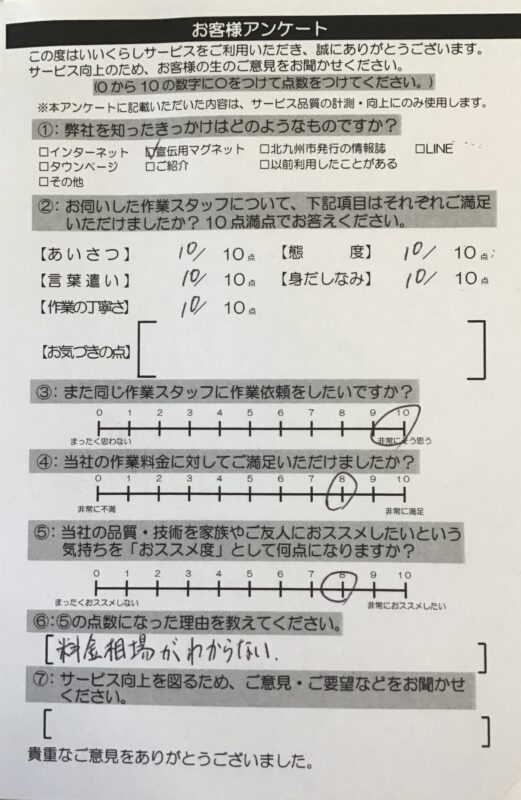 お客様アンケート
この度はいいくらしサービスをご利用いただき、誠にありがとうございます。
サービス向上のため、お客様の生のご意見をお聞かせください。
(0から10の数字に○をつけて点数をつけてください。)
※本アンケートに記載いただいた内容は、サービス品質の計測・向上にのみ使用します。
①：弊社を知ったきっかけはどのようなものですか？
□インターネット ☑宣伝用マグネット □北九州市発行の情報誌 □LINE
□タウンページ □ご紹介 □以前利用したことがある
□その他
②：お伺いした作業スタッフについて、下記項目はそれぞれご満足
いただけましたか？10点満点でお答えください。
【あいさつ】 10/ 10点 【態度】 10/ 10点
【言葉遣い】 10/ 10点 【身だしなみ】 10/ 10点
【作業の丁寧さ】 10/ 10点
【お気づきの点】
③：また同じ作業スタッフに作業依頼をしたいですか？
0 1 2 3 4 5 6 7 8 9 10
まったく思わない 非常にそう思う
④：当社の作業料金に対してご満足いただけましたか？
0 1 2 3 4 5 6 7 8 9 10
非常に不満 非常に満足
⑤：当社の品質・技術を家族やご友人におススメしたいという
気持ちを「おススメ度」として何点になりますか？
0 1 2 3 4 5 6 7 8 9 10
まったくおススメしない 非常におススメしたい
⑥：⑤の点数になった理由を教えてください。
料金相場がわからない.
⑦：サービス向上を図るため、ご意見・ご要望などをお聞かせ
ください。
貴重なご意見をありがとうございました。